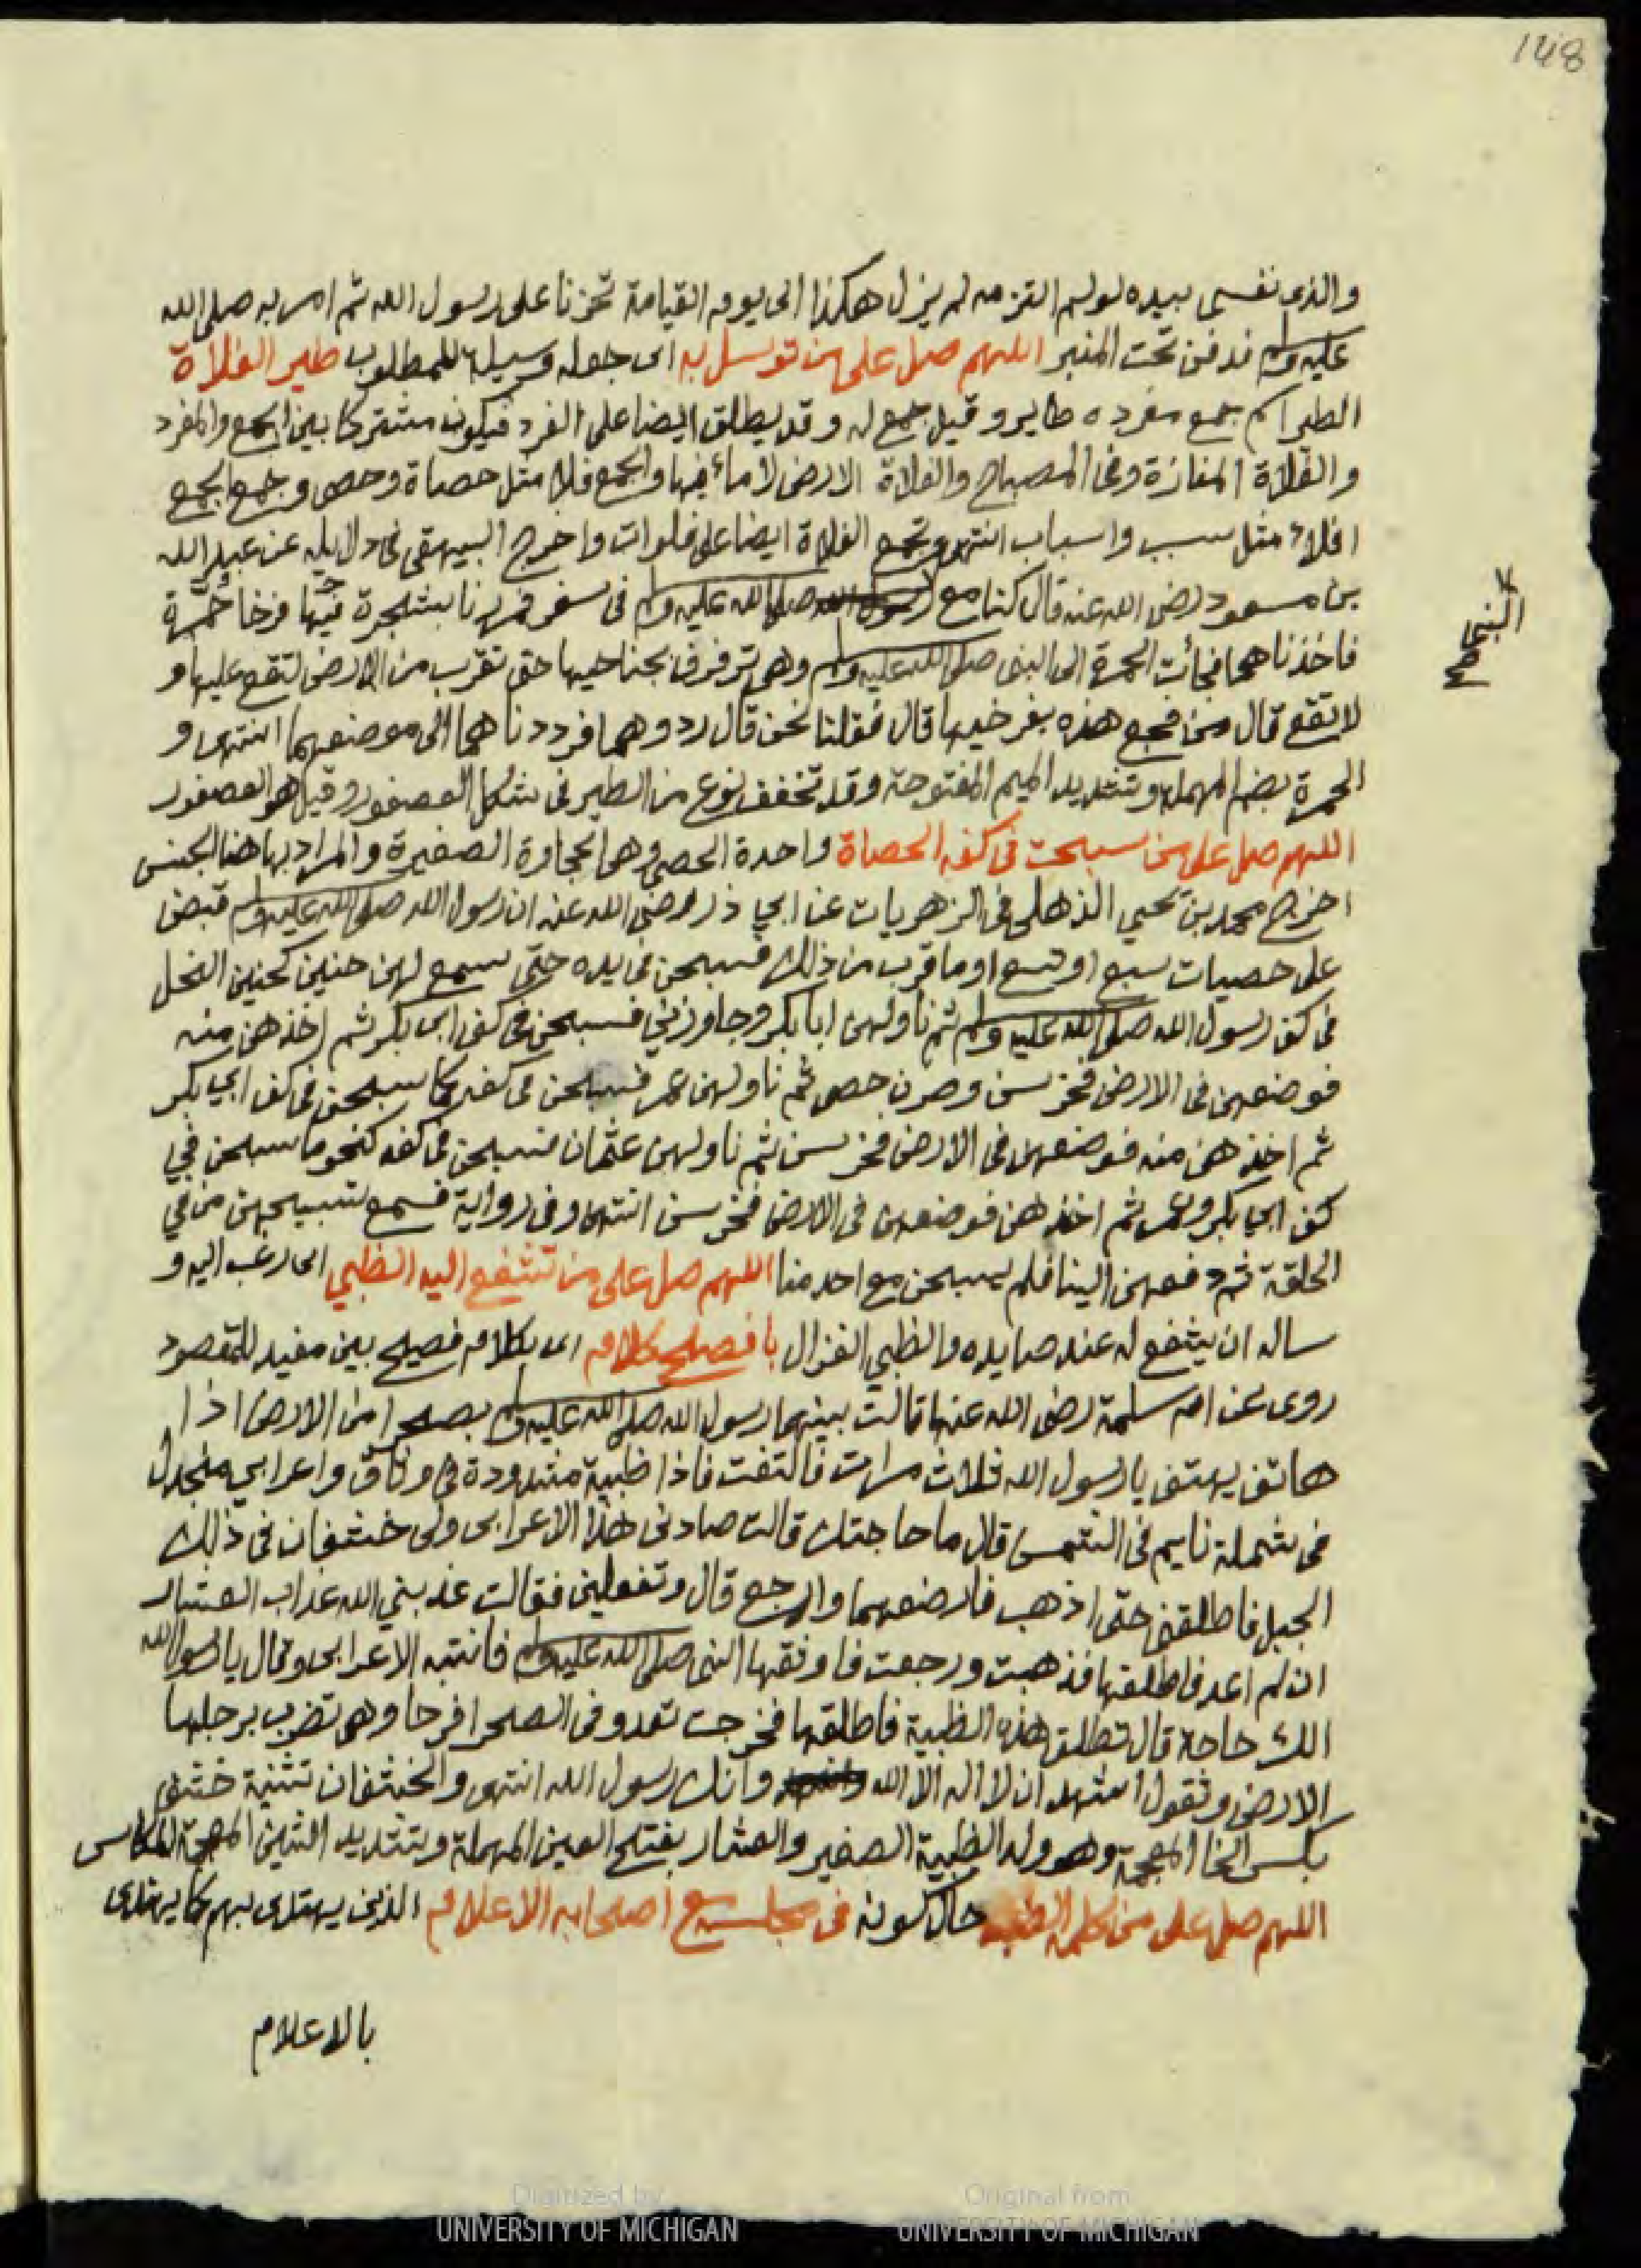 148
والذي نفسي بيده لو لم التزمه لم يزل هكذا الى يوم القيامة تحزنا على رسول الله ثم امر به صلى الله
عليه وسلم فدفن تحت المنبر اللهم صل على من توسل به اى جعله وسيلة للمطلوب طير الفلاة
الطير اسم جمع مفرده طاير وقيل جمع له وقد يطلق ايضا على الفرد فيكون مشتركا بين الجمع والمفرد
والفلاة المفازة وفى المصباح والفلاة الارض لا ماء فيها والجمع فلا مثل حصاة وحصى وجمع الجمع
افلاء مثل سبب واسباب انتهى وتجمع الفلاة ايضا على فلوات واخرج البيهقى فى دلايله عن عبد الله
بن مسعود رضى الله عنه قال كنا مع رسول الله صلى الله عليه وسلم فى سفر فمررنا بشجرة فيها فرخا حُمَّرة
النبى
صح
فاخذناهما فجأت الحمرة الى النبى صلى الله عليه وسلم وهى ترفرف بجناحيها حتى تقرب من الارض لتقع عليها و
لا تقع قال من فجع هذه بفرخيها قال فقلنا نحن قال ردوهما فرددناهما الى موضعهما انتهى و
الحمرة بضم المهملة وتشديد الميم المفتوحة وقد تخفف نوع من الطير فى شكل العصفور وقيل هو العصفور
اللهم صل على من سبحت فى كفه الحصاة واحدة الحصى وهى الحجارة الصغيرة والمراد بها هنا الجنس
اخرج محمد بن يحيي الذهلى فى الزهريات عن ابي ذر رضى الله عنه ان رسول الله صلى الله عليه وسلم قبض
على حصيات سبع او تسع او ما قرب من ذلك فسبحن فى يده حتى سمع لهن حنين كحنين النحل
فى كف رسول الله صلى الله عليه وسلم ثم ناولهن ابا بكر وجاوزني فسبحن فى كف ابى بكر ثم اخذهن منه
فوضعهن فى الارض فخرسن وصرن حصى ثم ناولهن عمر فسبحن فى كفه كما سبحن فى كف ابي بكر
ثم اخذهن منه فوضعهن فى الارض فخرسن ثم ناولهن عثمان فسبحن فى كفه كنحو ما سبحن في
كف ابي بكر وعمر ثم اخذهن فوضعهن فى الارض فخرسن انتهى وفى رواية فسمع تسبيحهن من في
الحلقة ثم دفعهن الينا فلم يسبحن مع احد منا اللهم صل على من تشفع اليه الظبي اى رغب اليه و
ساله ان يشفع له عند صايده والظبي الغزال بافصح كلام اى بكلام فصيح بين مفيد للمقصود
روى عن ام سلمة رضى الله عنها قالت بينما رسول الله صلى الله عليه وسلم بصحرا من الارض اذا
هاتف يهتف يا رسول الله ثلاث مرات فالتفت فاذا ظبية مشدودة فى وثاق واعرابي منجدل
فى شملة نايم فى الشمس قال ما حاجتك قالت صادنى هذا الاعرابى ولى خشفان فى ذلك
الجبل فاطلقنى حتى اذهب فارضعهما وارجع قال وتفعلين فقالت عذبني الله عذاب العشار
ان لم اعد فاطلقها فذهبت ورجعت فاوثقها النبى صلى الله عليه وسلم فانتبه الاعرابى وقال يا رسول الله
الك حاجة قال تطلق هذه الظبية فاطلقها فخرجت تعدو فى الصحرا فرحا وهى تضرب برجليها
الارض وتقول اشهد ان لا اله الا الله وانك رسول الله انتهى والخشفان تثنية خشف
بكسر الخا المعجمة وهو ولد الظبية الصغير والعشار بفتح العين المهملة وبتشديد الشين المعجمة المكاس
اللهم صل على من كلمه الضب حال كونه فى مجلسه مع اصحابه الاعلام الذين يهتدى بهم كما يهتدى
بالاعلام
Digitized by UNIVERSITY OF MICHIGAN
Original from UNIVERSITY OF MICHIGAN